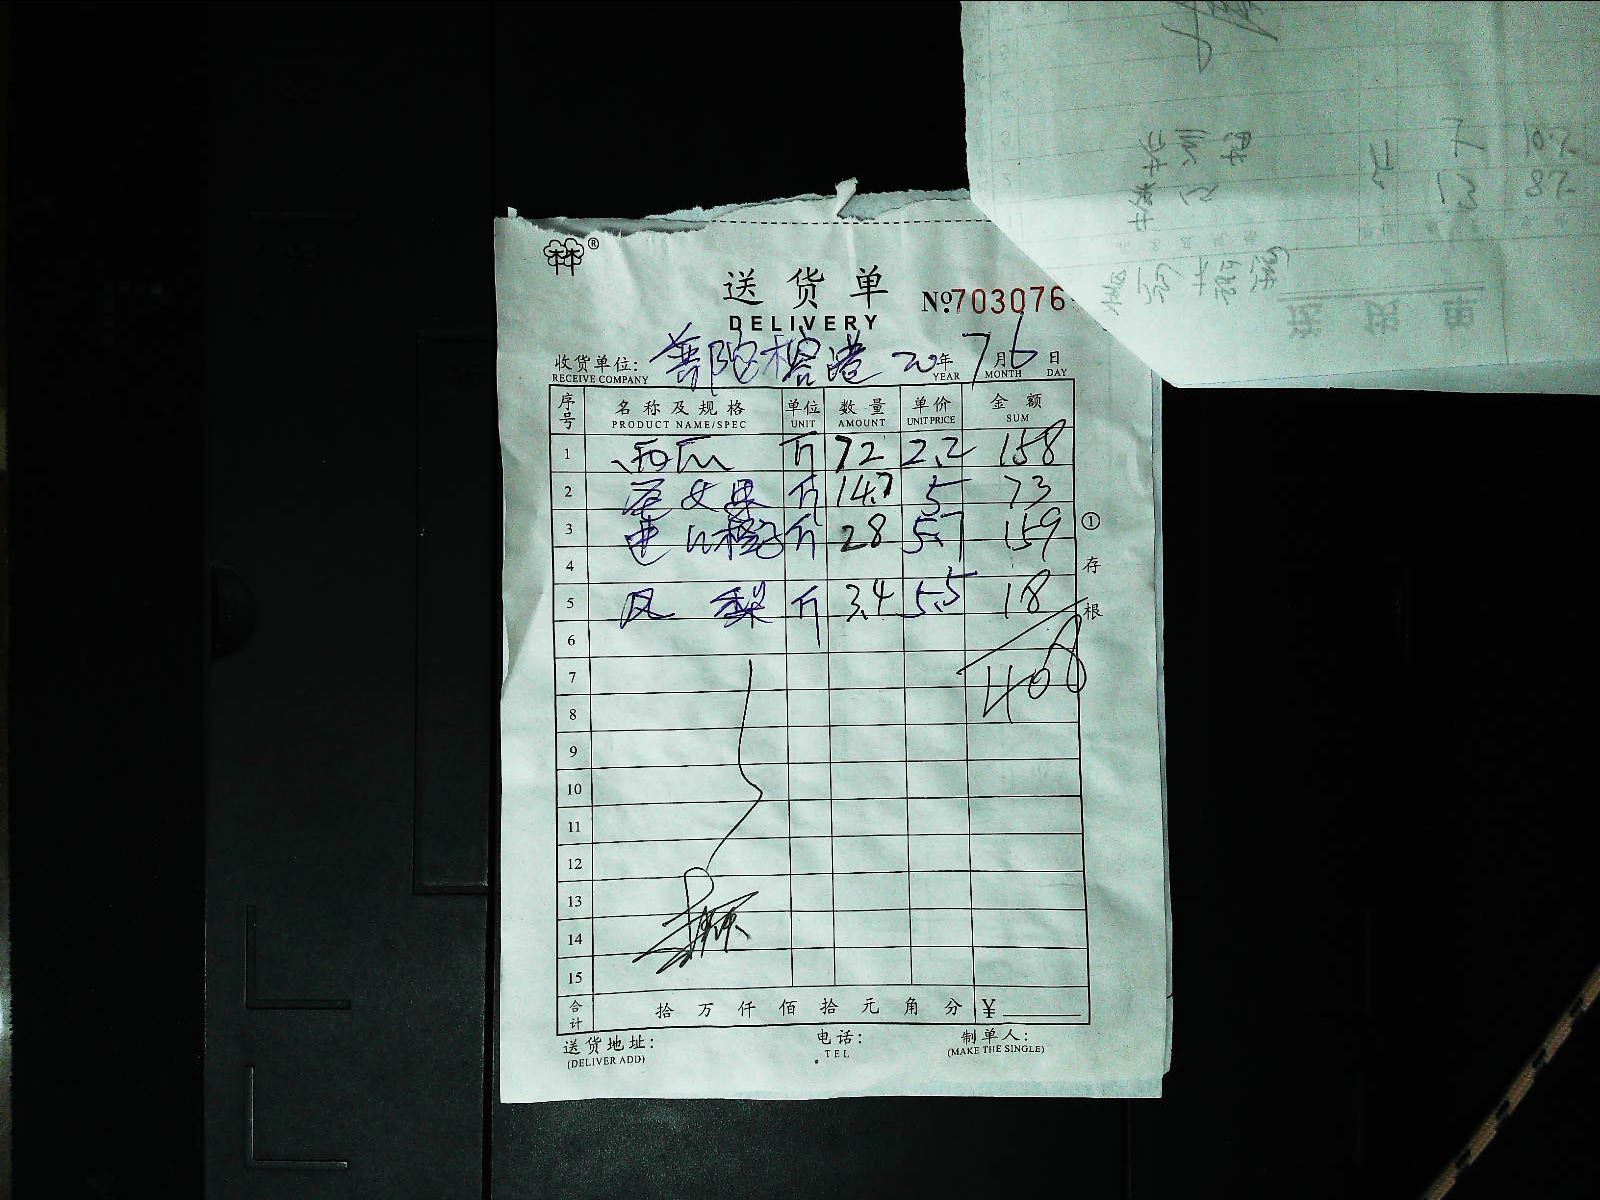 林林®
送货单
DELIVERY
№703076
收货单位: 普陀榕港 20年 7月 6日
RECEIVE COMPANY YEAR MONTH DAY
序号 名称及规格 单位 数量 单价 金额
PRODUCT NAME/SPEC UNIT AMOUNT UNIT PRICE SUM
1 西瓜 斤 72 2.2 158
2 斤 14.7 5 73
3 橙子 斤 28 5.7 159
4
5 凤梨 斤 3.4 5.5 18
6
7 408
8
9
10
11
12
13
14
15
合计 拾万仟佰拾元角分 ¥
①存根
送货地址: 电话: 制单人:
(DELIVER ADD) TEL (MAKE THE SINGLE)